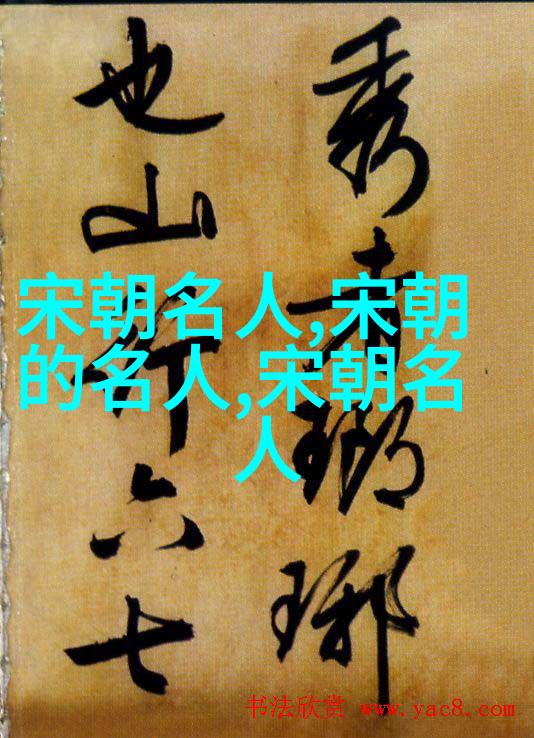 秀者瑯琊
也山行六七
宋朝名人,宋朝
的名人,宋朝名
人
书法欣赏 www.yac8.com